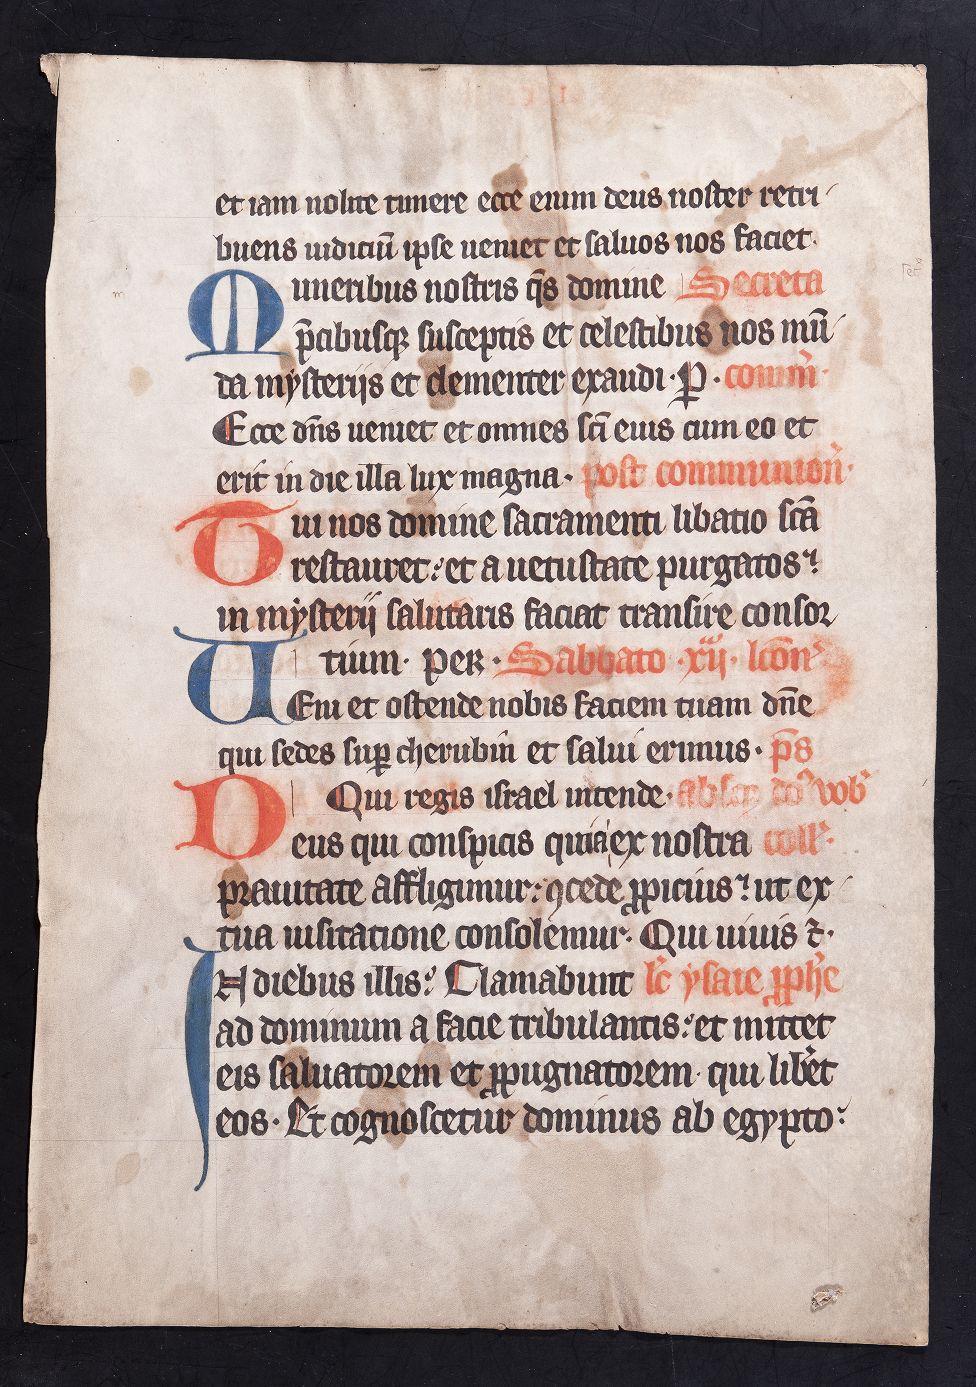 et iam nolite timere ecce enim deus noster retri
buens iudiciū ipse ueniet et saluos nos faciet.
Muneribus nostris q̄s domine Secreta
p̄cibusq; susceptis et celestibus nos mū
da mysterijs et clementer exaudi. P. com̄.
Ecce dn̄s ueniet et omnes sc̄i eius cum eo et
erit in die illa lux magna. post communion̄.
Tui nos domine sacramenti libatio sc̄a
restauret: et a uetustate purgatos
in mysterij salutaris faciat transire consor
tium. per. Sabbato .xij. lccōn
UEni et ostende nobis faciem tuam dn̄e
qui sedes sup cherubin et salui erimus. p̄s
Qui regis israel intende.
Deus qui conspicis quia ex nostra coll̄.
prauitate affligimur: ꝯcede ꝓpicius ut ex
tua uisitatione consolemur. Qui uiuis ⁊.
IN diebus illis: Clamabunt lc̄ ysaie ꝓph̄e
ad dominum a facie tribulantis: et mittet
eis saluatorem et ꝓpugnatorem. qui lib̄et
eos. Et cognoscetur dominus ab egypto: